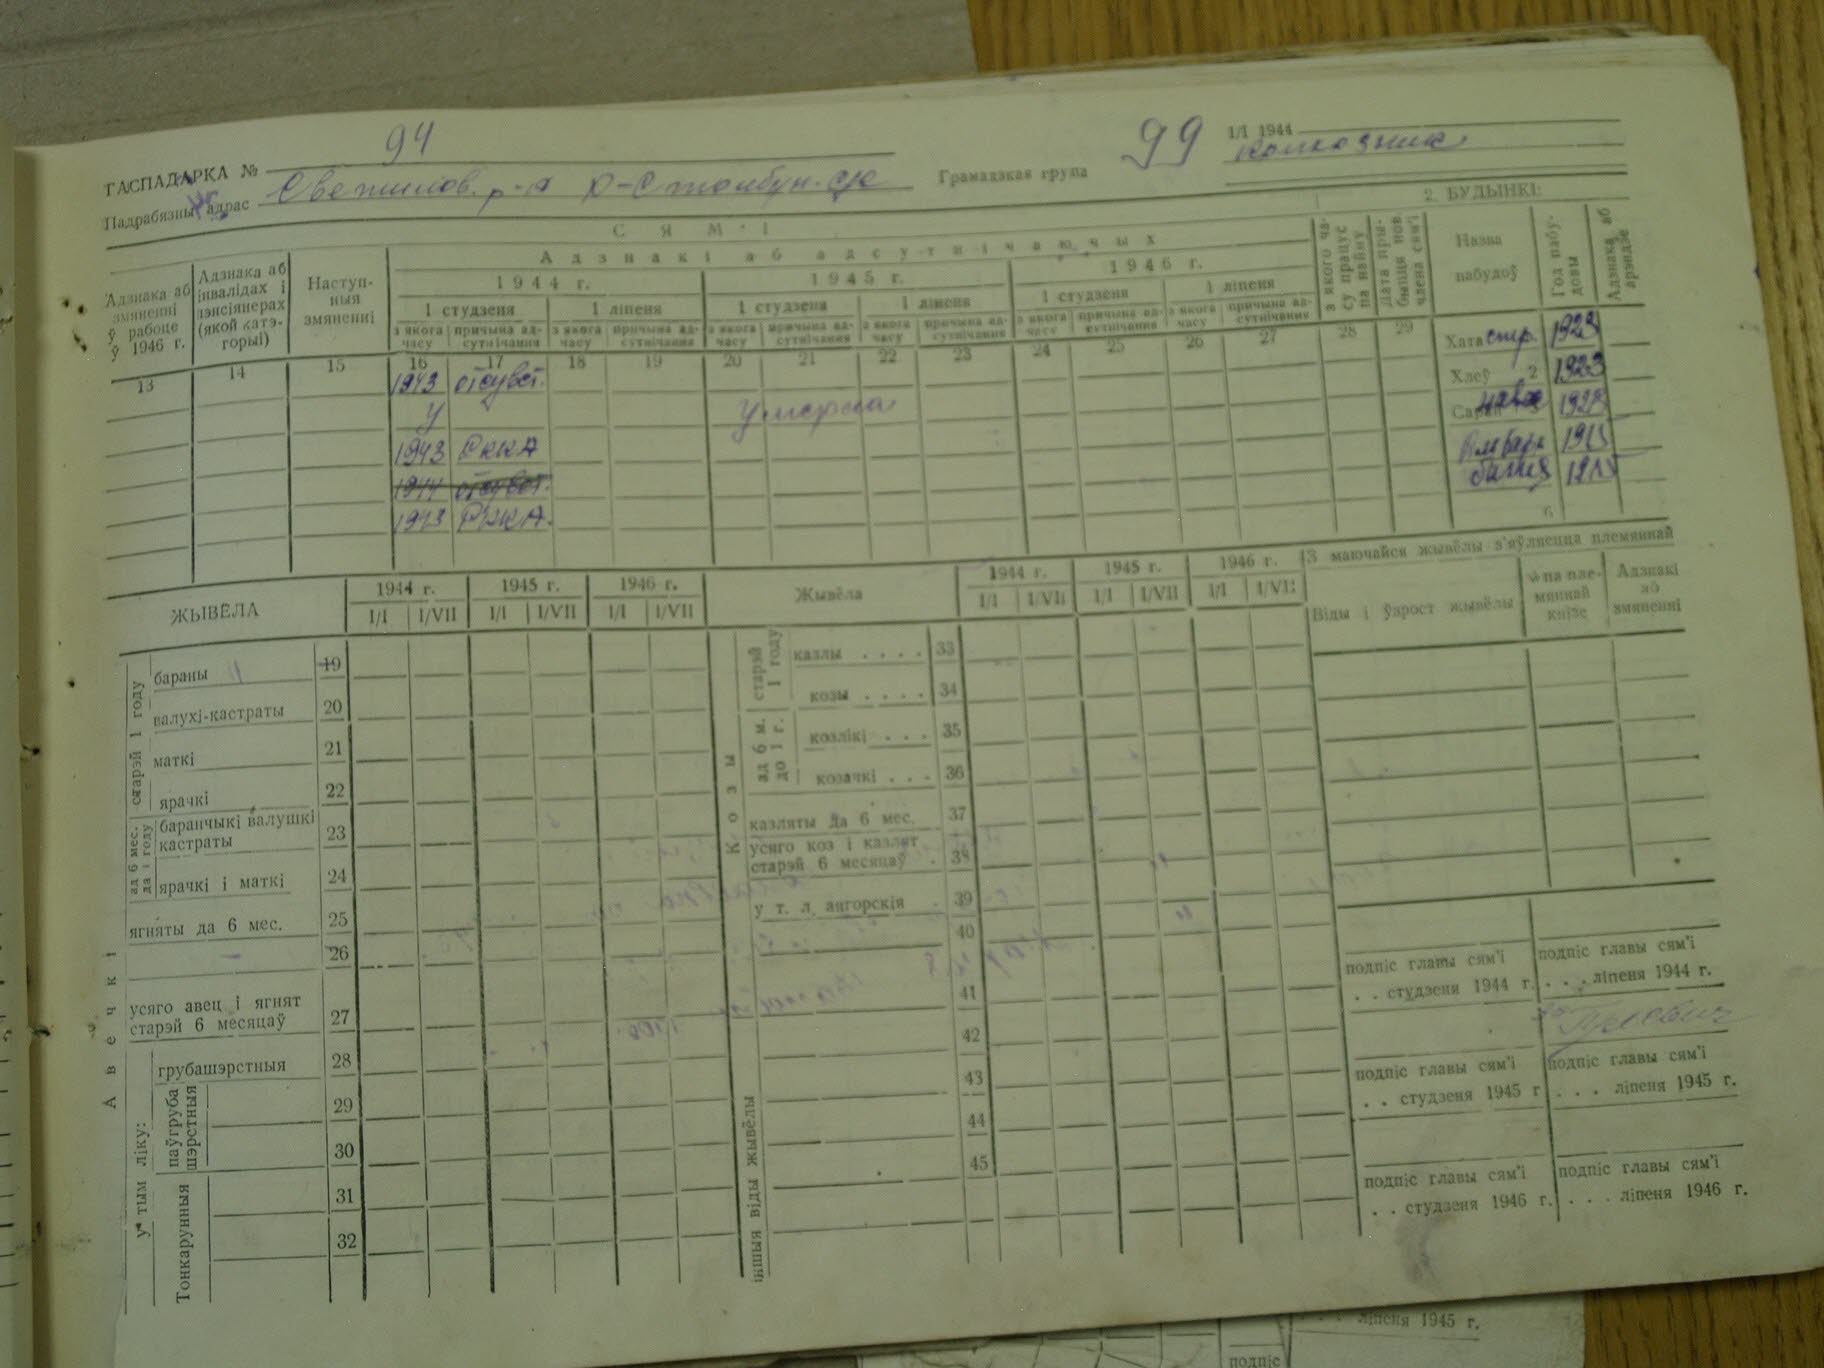 94
99
1/I 1944
колхозник
ГАСПАДАРКА №
Падрабязны адрас
Светилов. р-н
Грамадзкая група
СЯМ'І
2. БУДЫНКІ:
Адзнака аб змяненні ў рабоце ў 1946 г.
Адзнака аб інвалідах і пэнсіянерах (якой катэгорыі)
Наступныя змяненні
Адзнакі аб адсутнічаючых
1944 г.
1945 г.
1946 г.
1 студзеня
1 ліпеня
1 студзеня
1 ліпеня
1 студзеня
1 ліпеня
з якога часу
прычына адсутнічання
з якога часу
прычына адсутнічання
з якога часу
прычына адсутнічання
з якога часу
прычына адсутнічання
з якога часу
прычына адсутнічання
з якога часу
прычына адсутнічання
з якога часу працуе па найму
Дата прыбыцця нов. члена сям'і
Назва пабудоў
Год пабудовы
Адзнака аб арэндзе
13 14 15 16 17 18 19 20 21 22 23 24 25 26 27 28 29
1943 отсувст.
У
умерла
1943 РККА
1944 отсувст.
1943 РККА.
Хата стр. 1923
Хлеў 2 1923
Сарай 1928
Амбары 1915
баня 1915
6
ЖЫВЁЛА
1944 г. 1945 г. 1946 г.
1/I 1/VII 1/I 1/VII 1/I 1/VII
Авечкі
старэй 1 году
бараны 19
валухі-кастраты 20
маткі 21
ярачкі 22
ад 6 мес. да 1 году
баранчыкі валушкі кастраты 23
ярачкі і маткі 24
ягняты да 6 мес. 25
26
усяго авец і ягнят старэй 6 месяцаў 27
у тым ліку:
грубашэрстныя 28
паўгрубашэрстныя
29
30
Тонкарунныя
31
32
Жывёла
1944 г. 1945 г. 1946 г.
1/I 1/VII 1/I 1/VII 1/I 1/VII
Козы
старэй 1 году
казлы . . . . 33
козы . . . . 34
ад 6 м. до 1 г.
козлікі . . . 35
козачкі . . . 36
казляты да 6 мес. 37
усяго коз і казлят старэй 6 месяцаў . 38
у т. л. ангорскія . 39
40
41
іншыя віды жывёлы
42
43
44
45
З маючайся жывёлы з'яўляецца племяннай
Віды і ўзрост жывёлы
№ па племяннай кнізе
Адзнакі аб змяненні
подпіс главы сям'і
. . студзеня 1944 г.
подпіс главы сям'і
. . . ліпеня 1944 г.
подпіс главы сям'і
. . студзеня 1945 г
подпіс главы сям'і
. . . ліпеня 1945 г.
подпіс главы сям'і
. . студзеня 1946 г.
подпіс главы сям'і
. . . ліпеня 1946 г.
. . . ліпеня 1945 г.
подпіс